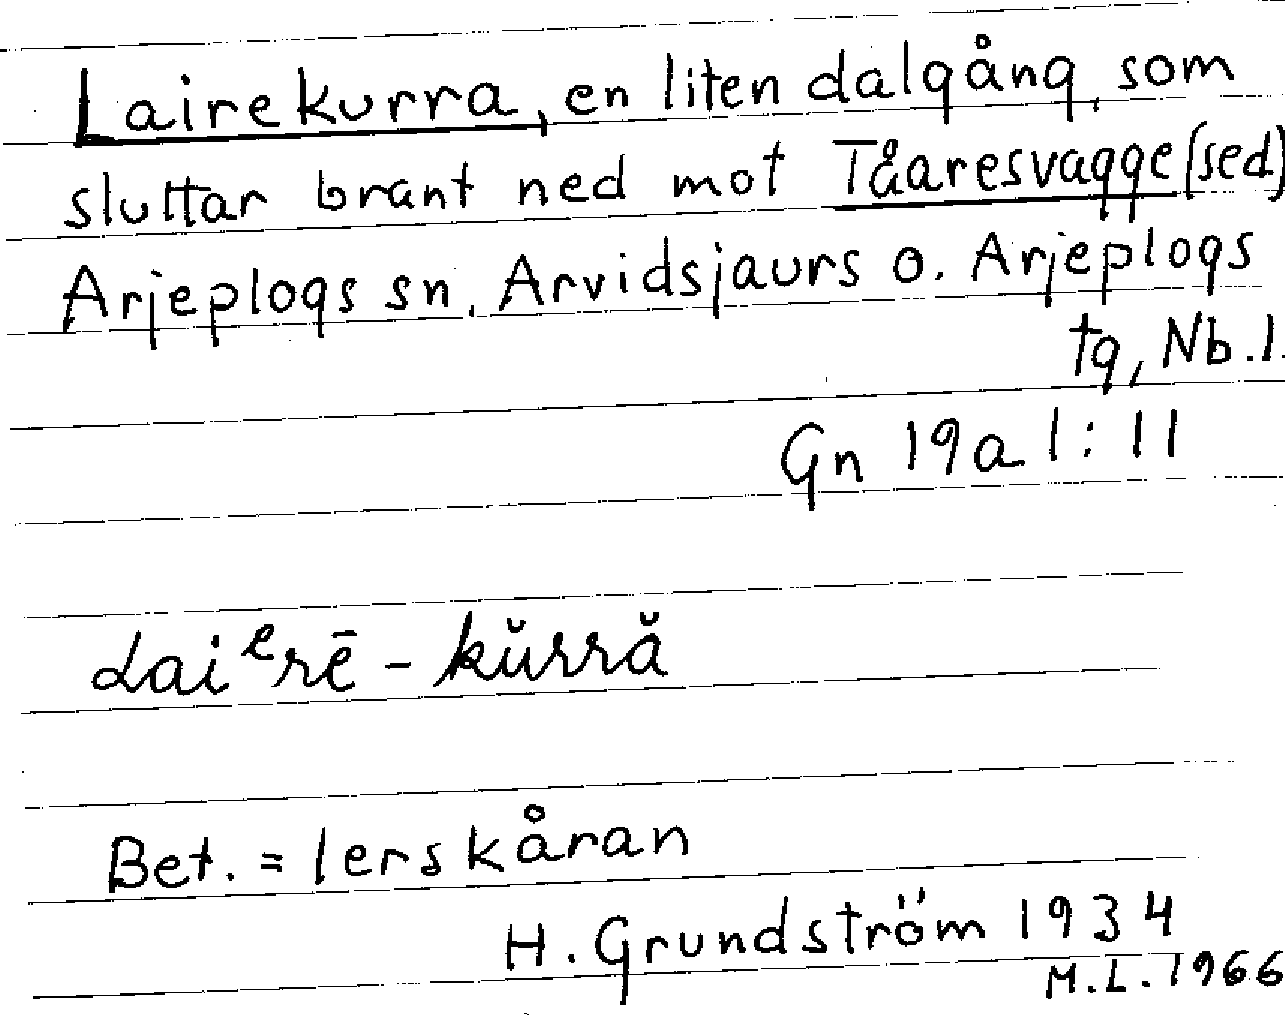 Lairekurra, en liten dalgång, som
sluttar brant ned mot Tåaresvagge (sed)
Arjeplogs sn, Arvidsjaurs o. Arjeplogs
tg, Nb.l.
Gn 19a 1:11
Laiᵉrē-kŭrră
Bet. = lerskåran
H. Grundström 1934
M.L. 1966